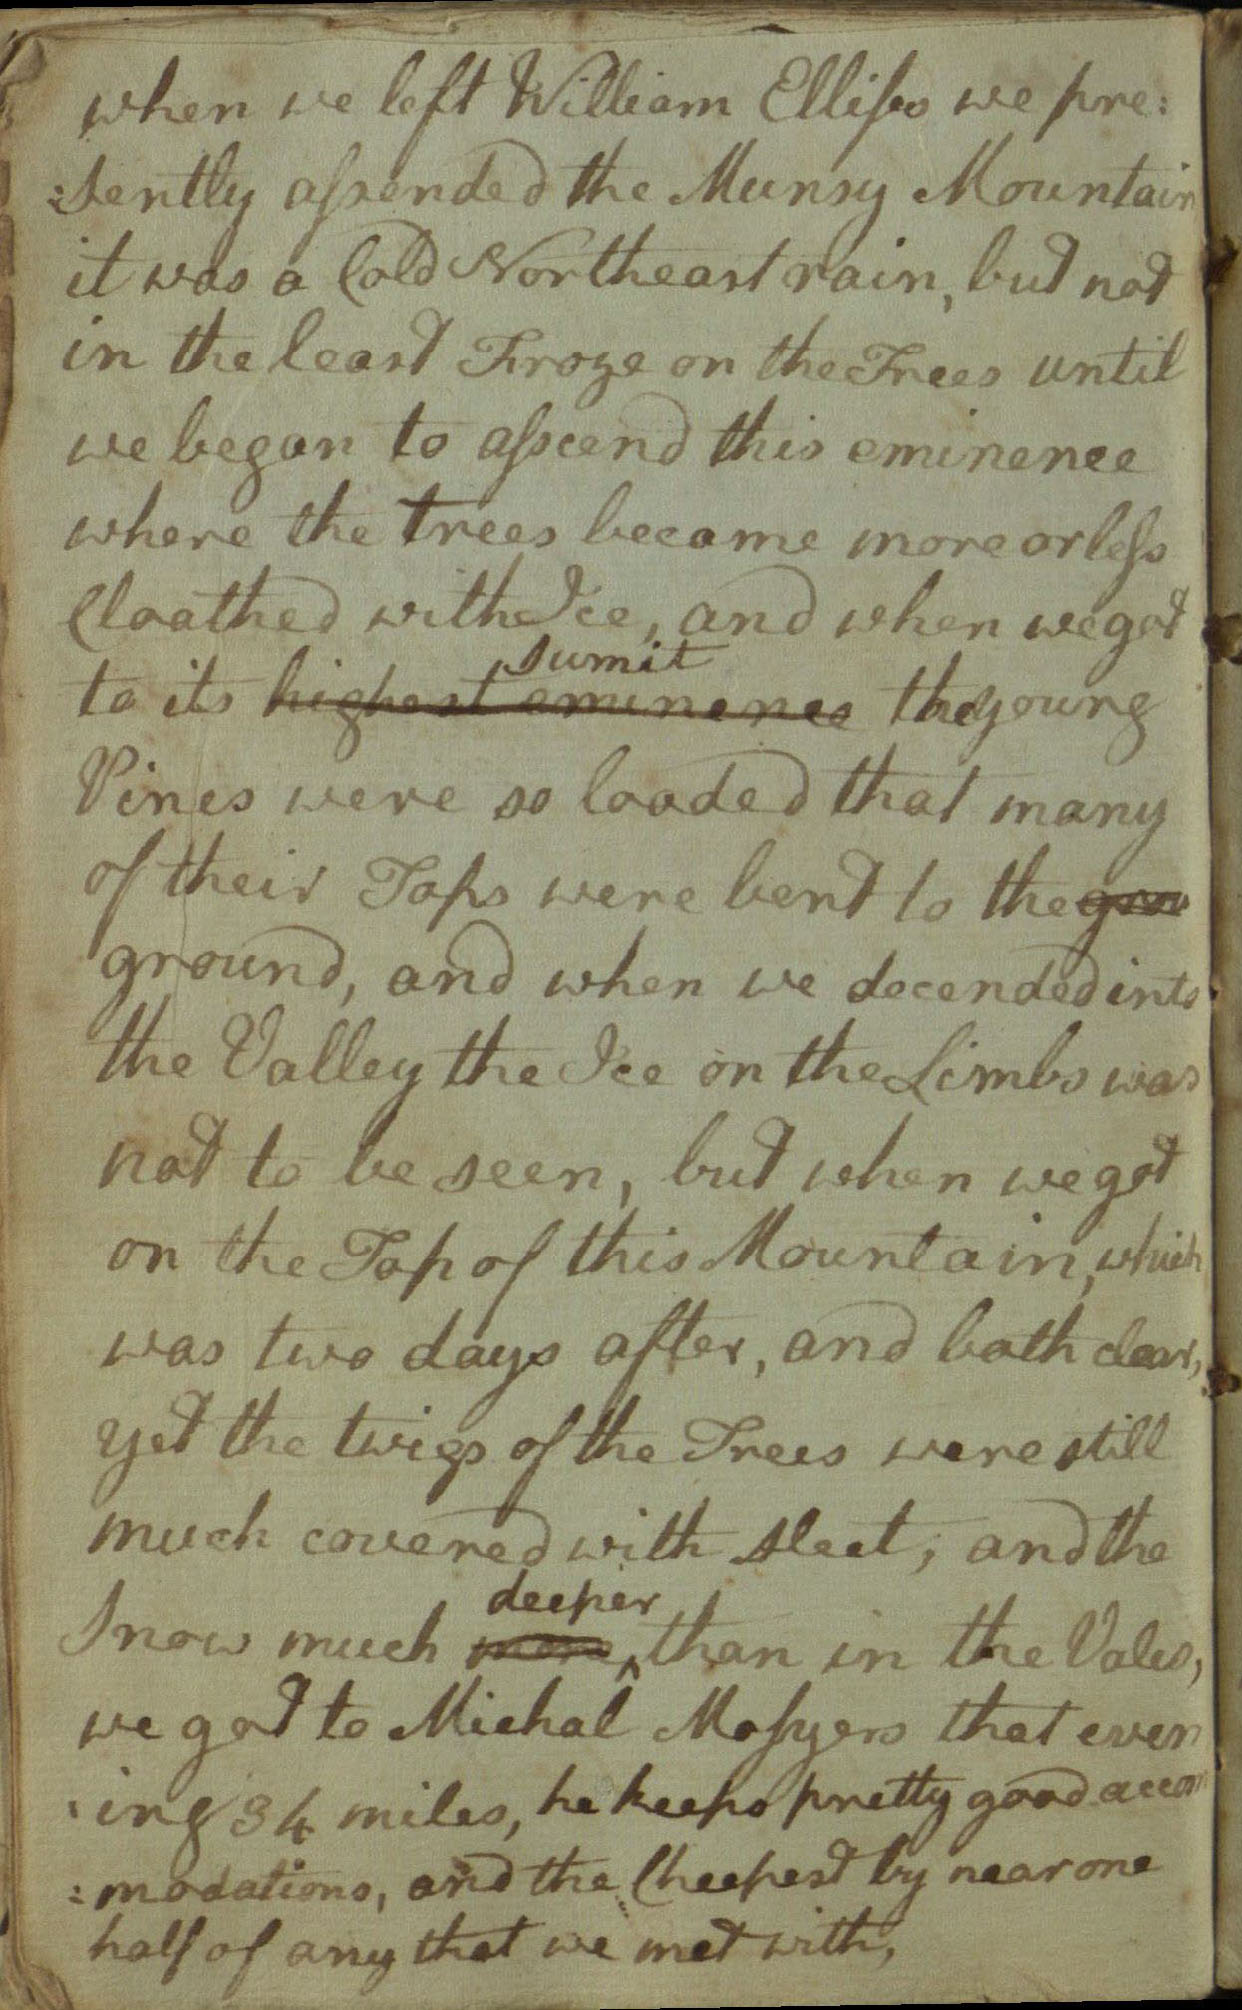 when we left William Ellises we pre:
:sently assended the Munsy Mountain
it was a Cold Northeast rain, but not
in the least Froze on the Trees until
we began to asscend this eminence
where the trees became more or less
Cloathed with Ice, and when we got
to its highest eminence sumit the young
Pines were so loaded that many
of their Tops were bent to the grou
ground, and when we decended into
the Valley the Ice on the Limbs was
not to be seen, but when we got
on the Top of this Mountain, which
was two days after, and both clear,
yet the twigs of the Trees were still
much covered with sleet, and the
Snow much more deeper than in the Vales,
we got to Michal Mossers that even
:ing 34 miles, he keeps pretty good accom
:modations, and the Cheepest by near one
half of any that we met with,